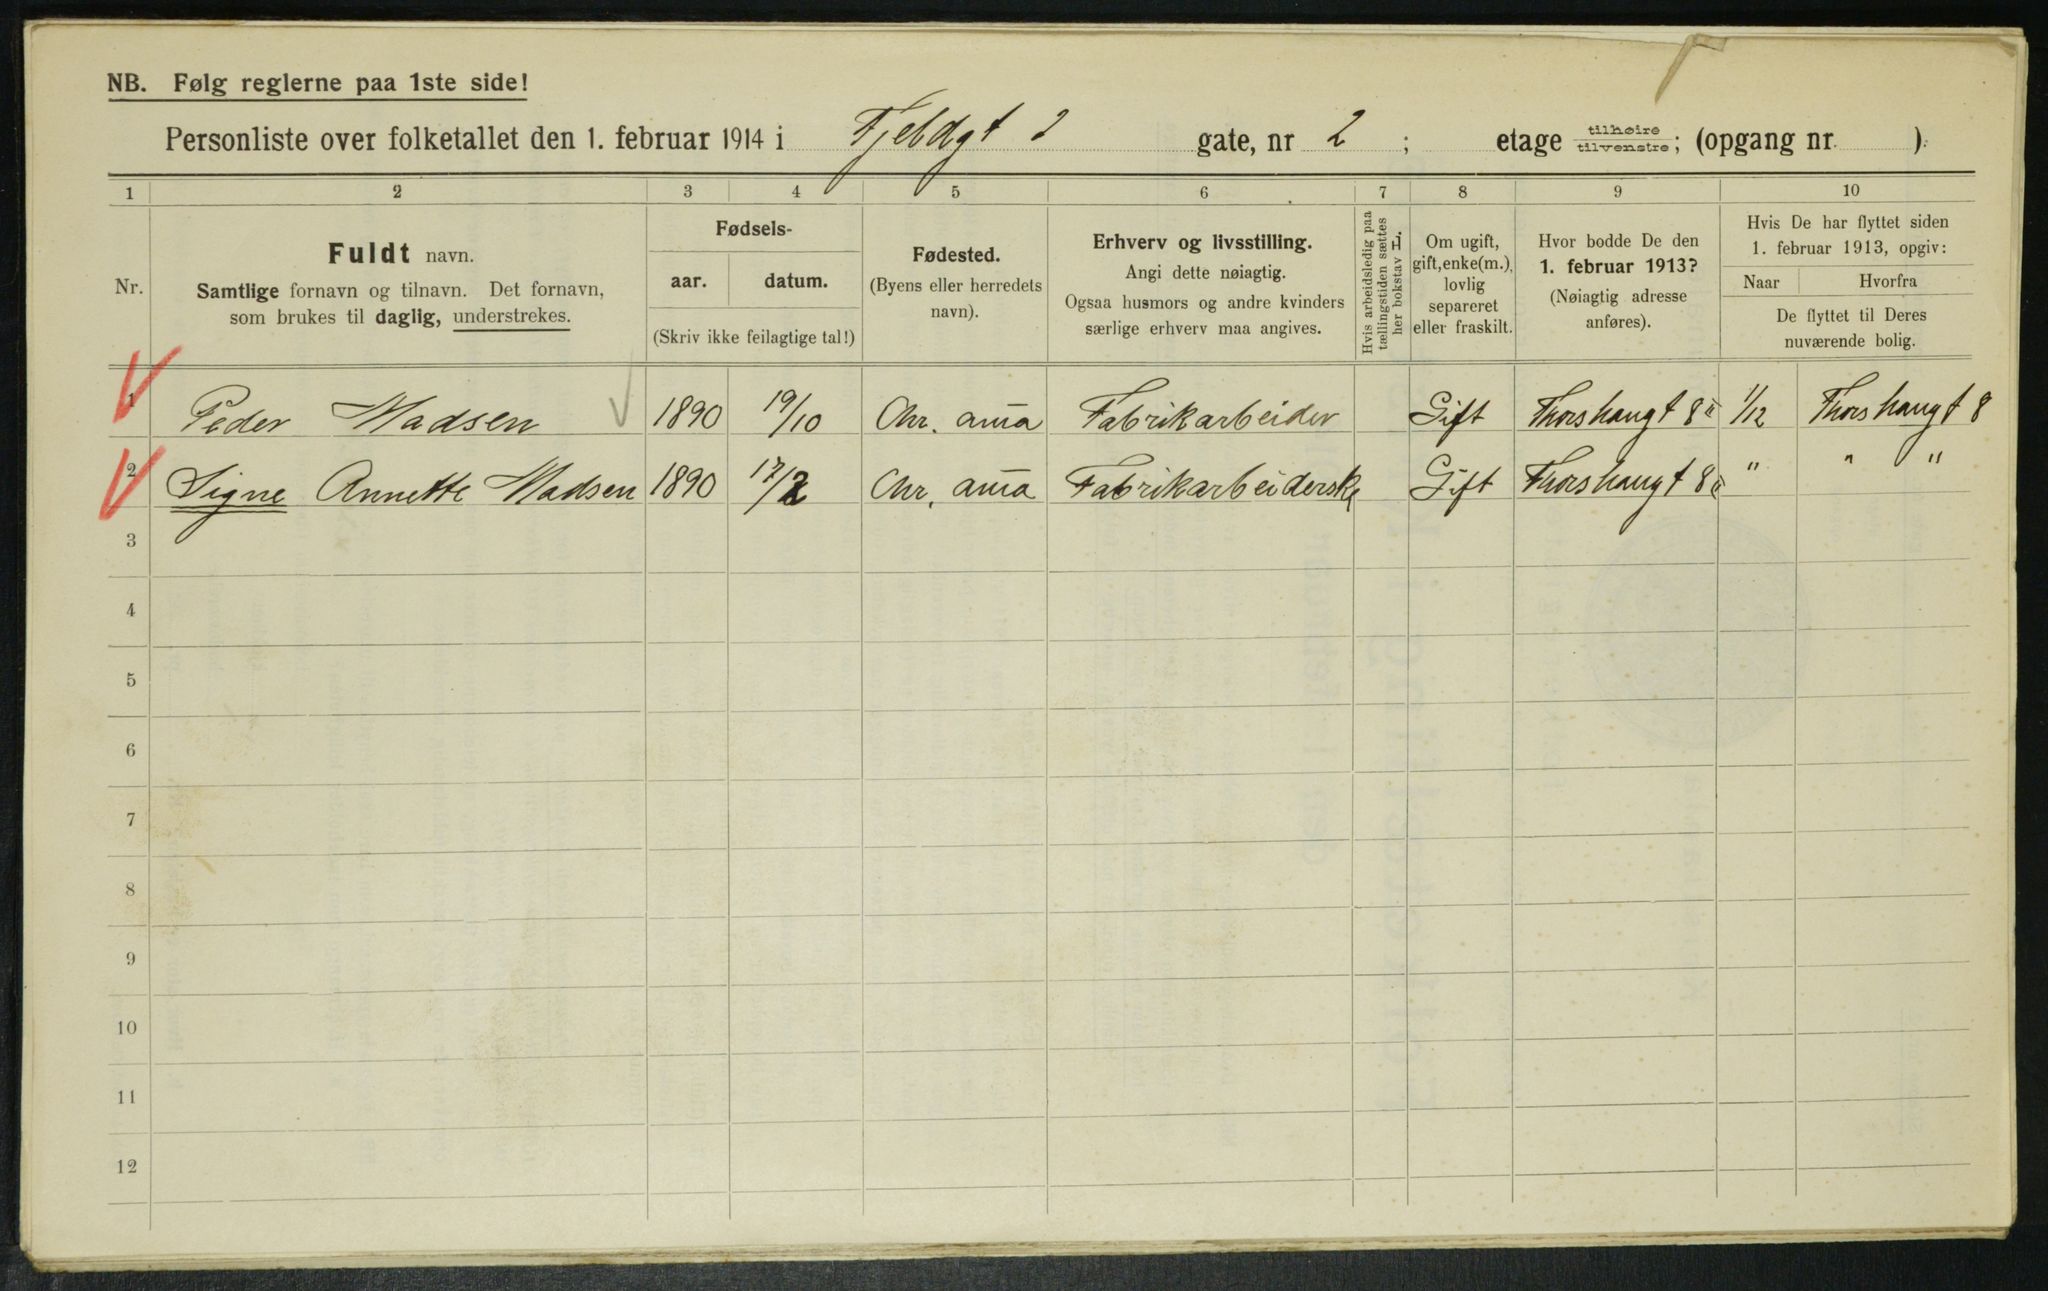 NB. Følg reglerne paa 1ste side!
Personliste over folketallet den 1. februar 1914 i Fjeldgt 2 gate, nr 2 ; etage tilhøire tilvenstre; (opgang nr. ).
1 2 3 4 5 6 7 8 9 10
Nr.
Fuldt navn.
Samtlige fornavn og tilnavn. Det fornavn,
som brukes til daglig, understrekes.
Fødsels-
aar. datum.
(Skriv ikke feilagtige tal!)
Fødested.
(Byens eller herredets
navn).
Erhverv og livsstilling.
Angi dette nøiagtig.
Ogsaa husmors og andre kvinders
særlige erhverv maa angives.
Hvis arbeidsledig paa
tællingstiden sættes
her bokstav L.
Om ugift,
gift, enke(m.),
lovlig
separeret
eller fraskilt.
Hvor bodde De den
1. februar 1913?
(Nøiagtig adresse
anføres).
Hvis De har flyttet siden
1. februar 1913, opgiv:
Naar Hvorfra
De flyttet til Deres
nuværende bolig.
1 Peder Madsen 1890 19/10 Chr. ania Fabrikarbeider Gift Thorshaugt 8 II 1/12 Thorshaugt 8
2 Signe Annette Madsen 1890 17/2 Chr. ania Fabrikarbeiderske Gift Thorshaugt 8 II " " "
3
4
5
6
7
8
9
10
11
12